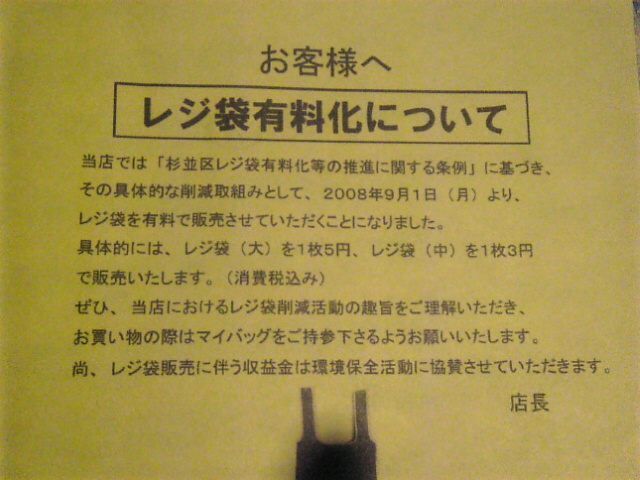 お客様へ
レジ袋有料化について
当店では「杉並区レジ袋有料化等の推進に関する条例」に基づき、
その具体的な削減取組みとして、2008年9月1日（月）より、
レジ袋を有料で販売させていただくことになりました。
具体的には、レジ袋（大）を1枚5円、レジ袋（中）を1枚3円
で販売いたします。（消費税込み）
ぜひ、当店におけるレジ袋削減活動の趣旨をご理解いただき、
お買い物の際はマイバッグをご持参下さるようお願いいたします。
尚、レジ袋販売に伴う収益金は環境保全活動に協賛させていただきます。
店長